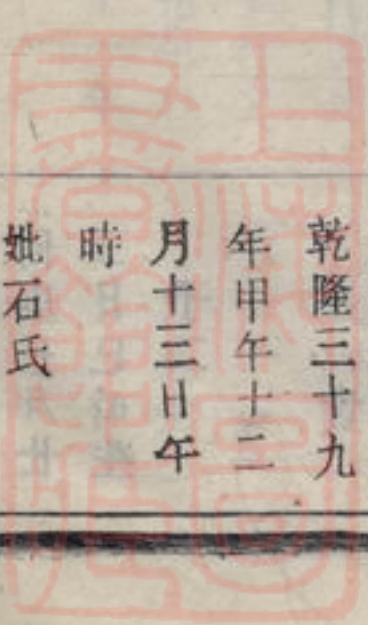 乾隆三十九
年甲午十二
月十三日午
時
妣石氏